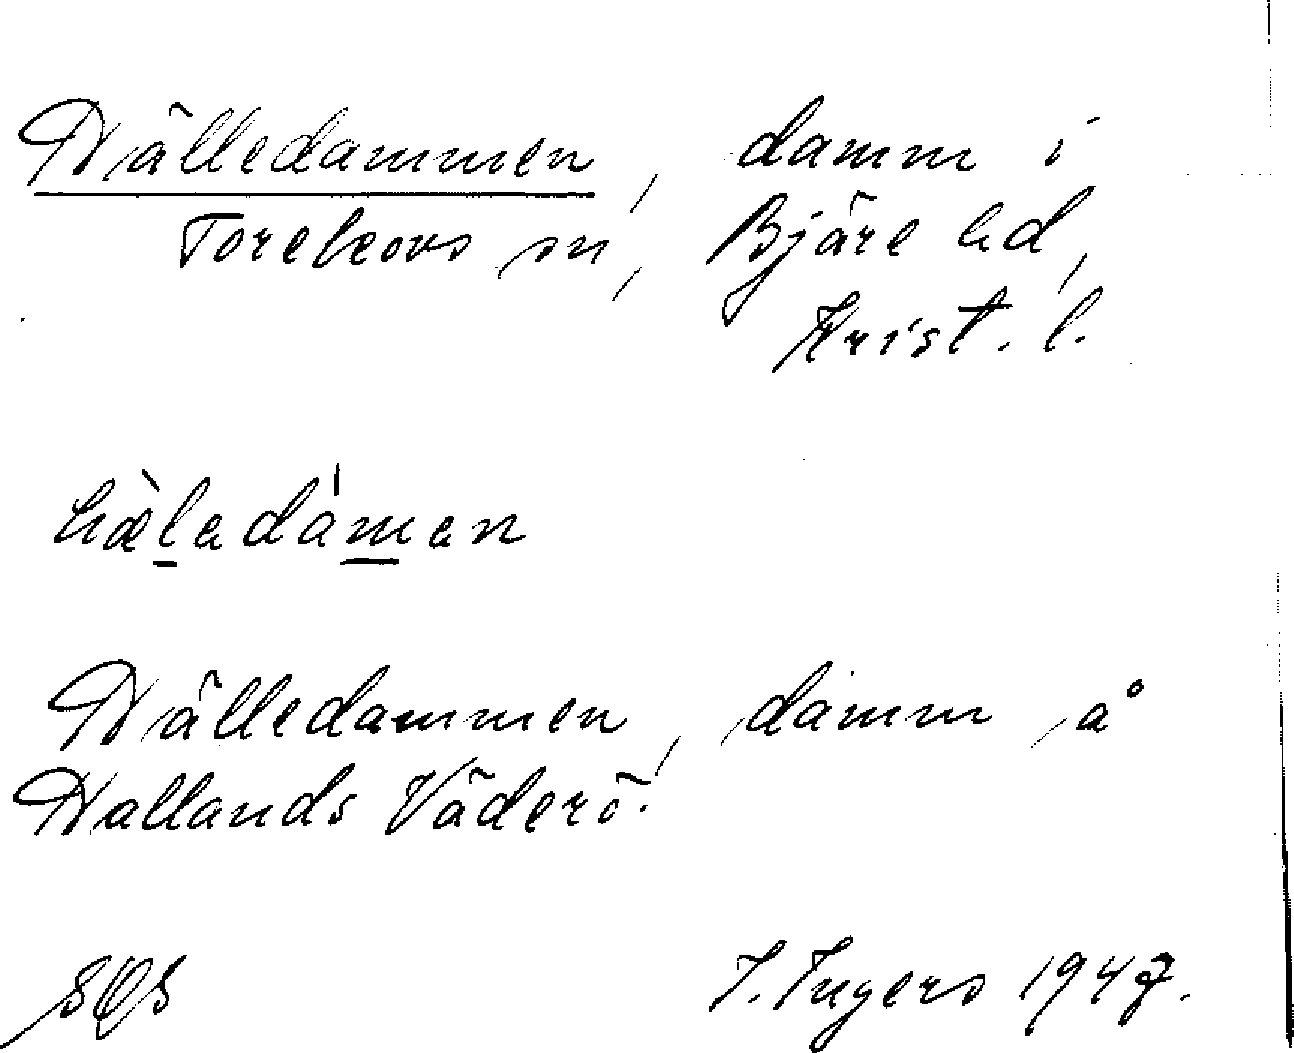 Hälledammen, damm i
Torekovs sn, Bjäre hd,
Krist. l.
hæ̀ledámen
Hälledammen, damm på
Hallands Väderö.
I. Ingers 1947.